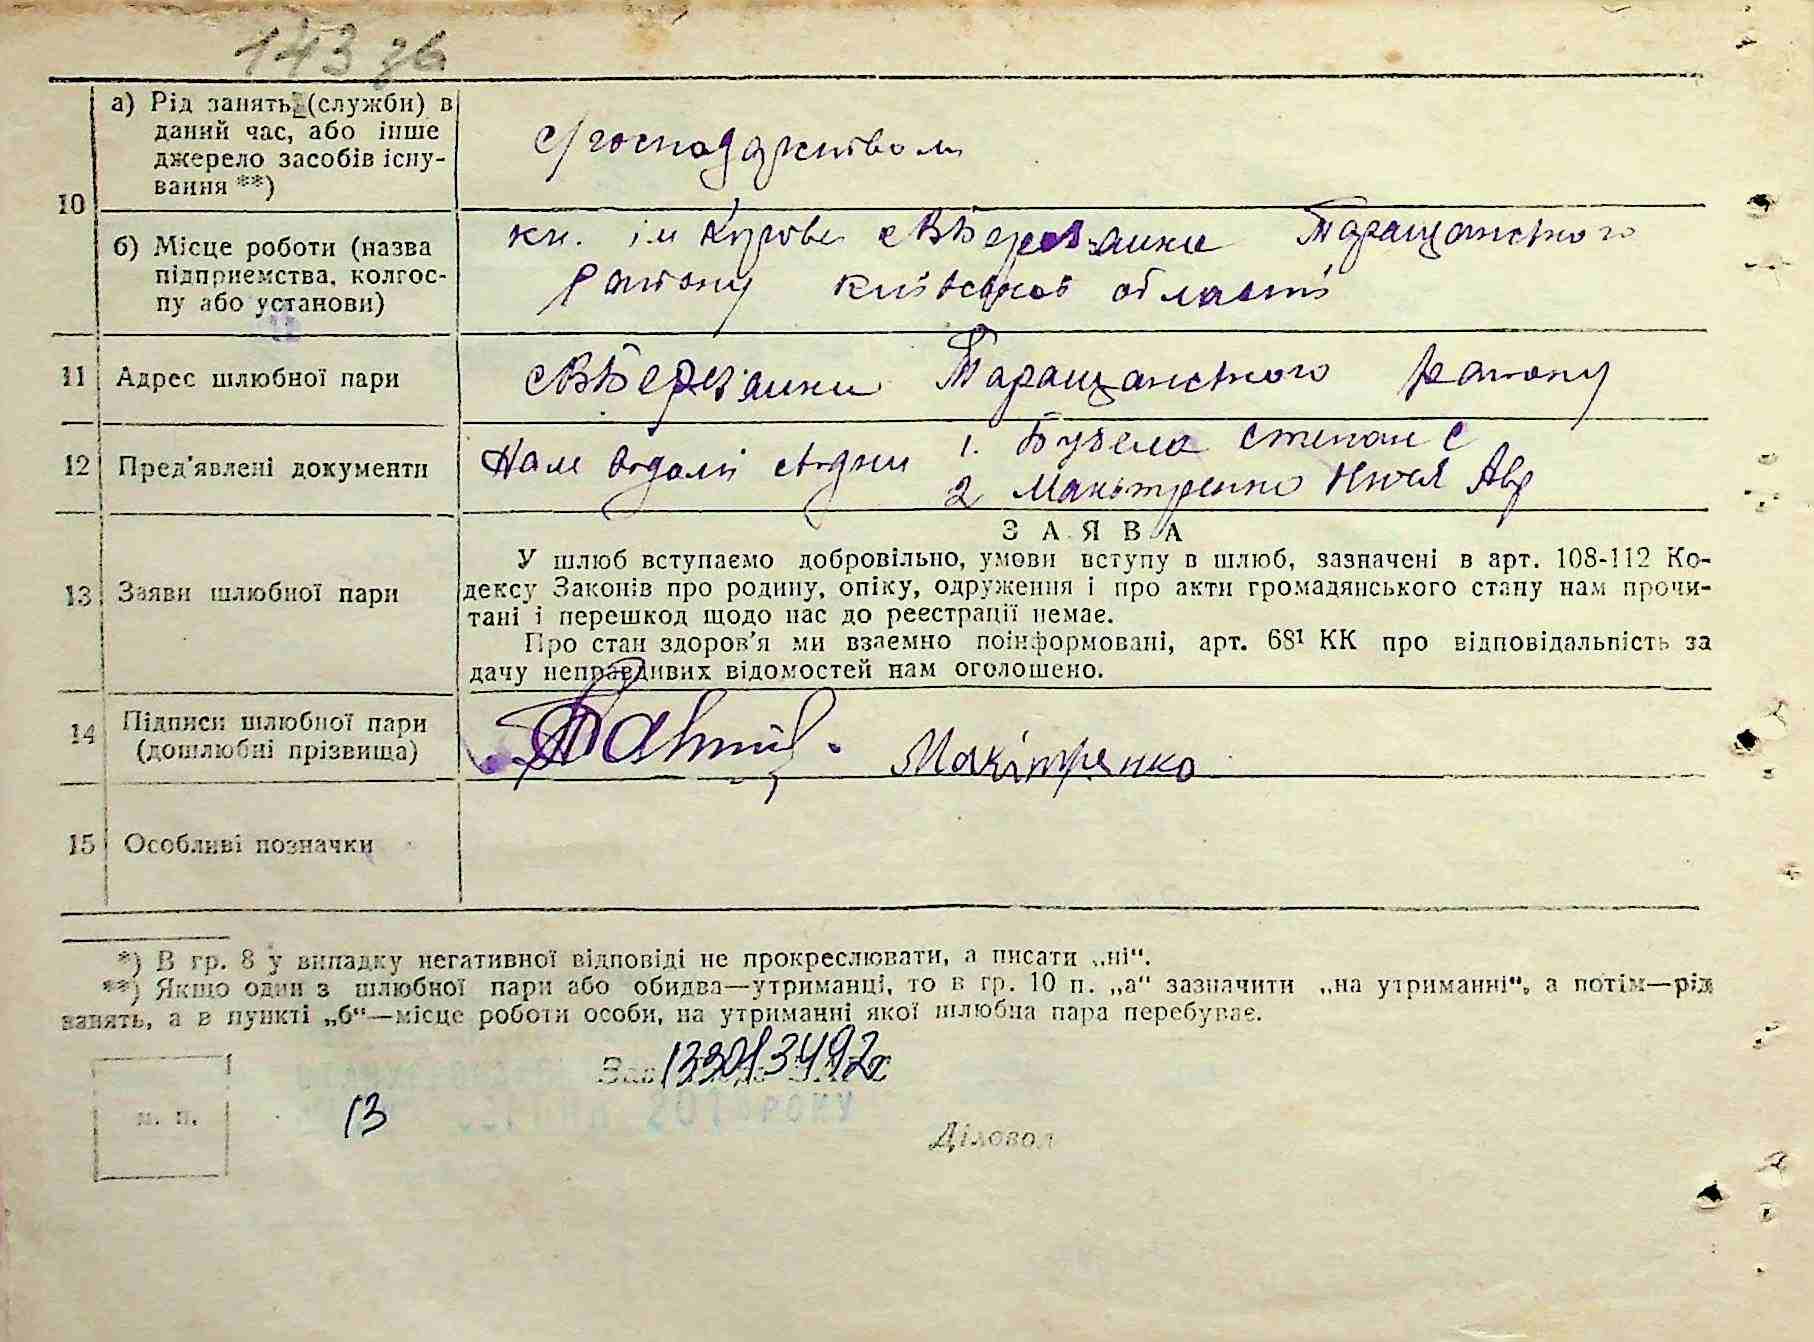 143 зв
10
а) Рід занять (служби) в
даний час, або інше
джерело засобів існу-
вання **)
с/господарством
б) Місце роботи (назва
підприємства, колгос-
пу або установи)
кл. ім Кірова с ВБерезянки Таращанського
району Київської області
11 Адрес шлюбної пари
с ВБерезянки Таращанського району
12 Пред'явлені документи
1. Бубела Степан С
2 Макітренко Авр
13 Заяви шлюбної пари
ЗАЯВА
У шлюб вступаємо добровільно, умови вступу в шлюб, зазначені в арт. 108-112 Ко-
дексу Законів про родину, опіку, одруження і про акти громадянського стану нам прочи-
тані і перешкод щодо нас до реєстрації немає.
Про стан здоров'я ми взаємно поінформовані, арт. 68¹ КК про відповідальність за
дачу неправдивих відомостей нам оголошено.
14 Підписи шлюбної пари
(дошлюбні прізвища)
Макітренко
15 Особливі позначки
*) В гр. 8 у випадку негативної відповіді не прокреслювати, а писати „ні“.
**) Якщо один з шлюбної пари або обидва—утриманці, то в гр. 10 п. „а“ зазначити „на утриманні“, а потім—рід
занять, а в пункті „б“—місце роботи особи, на утриманні якої шлюбна пара перебуває.
Зав
м. п.
13
РОКУ
Діловод